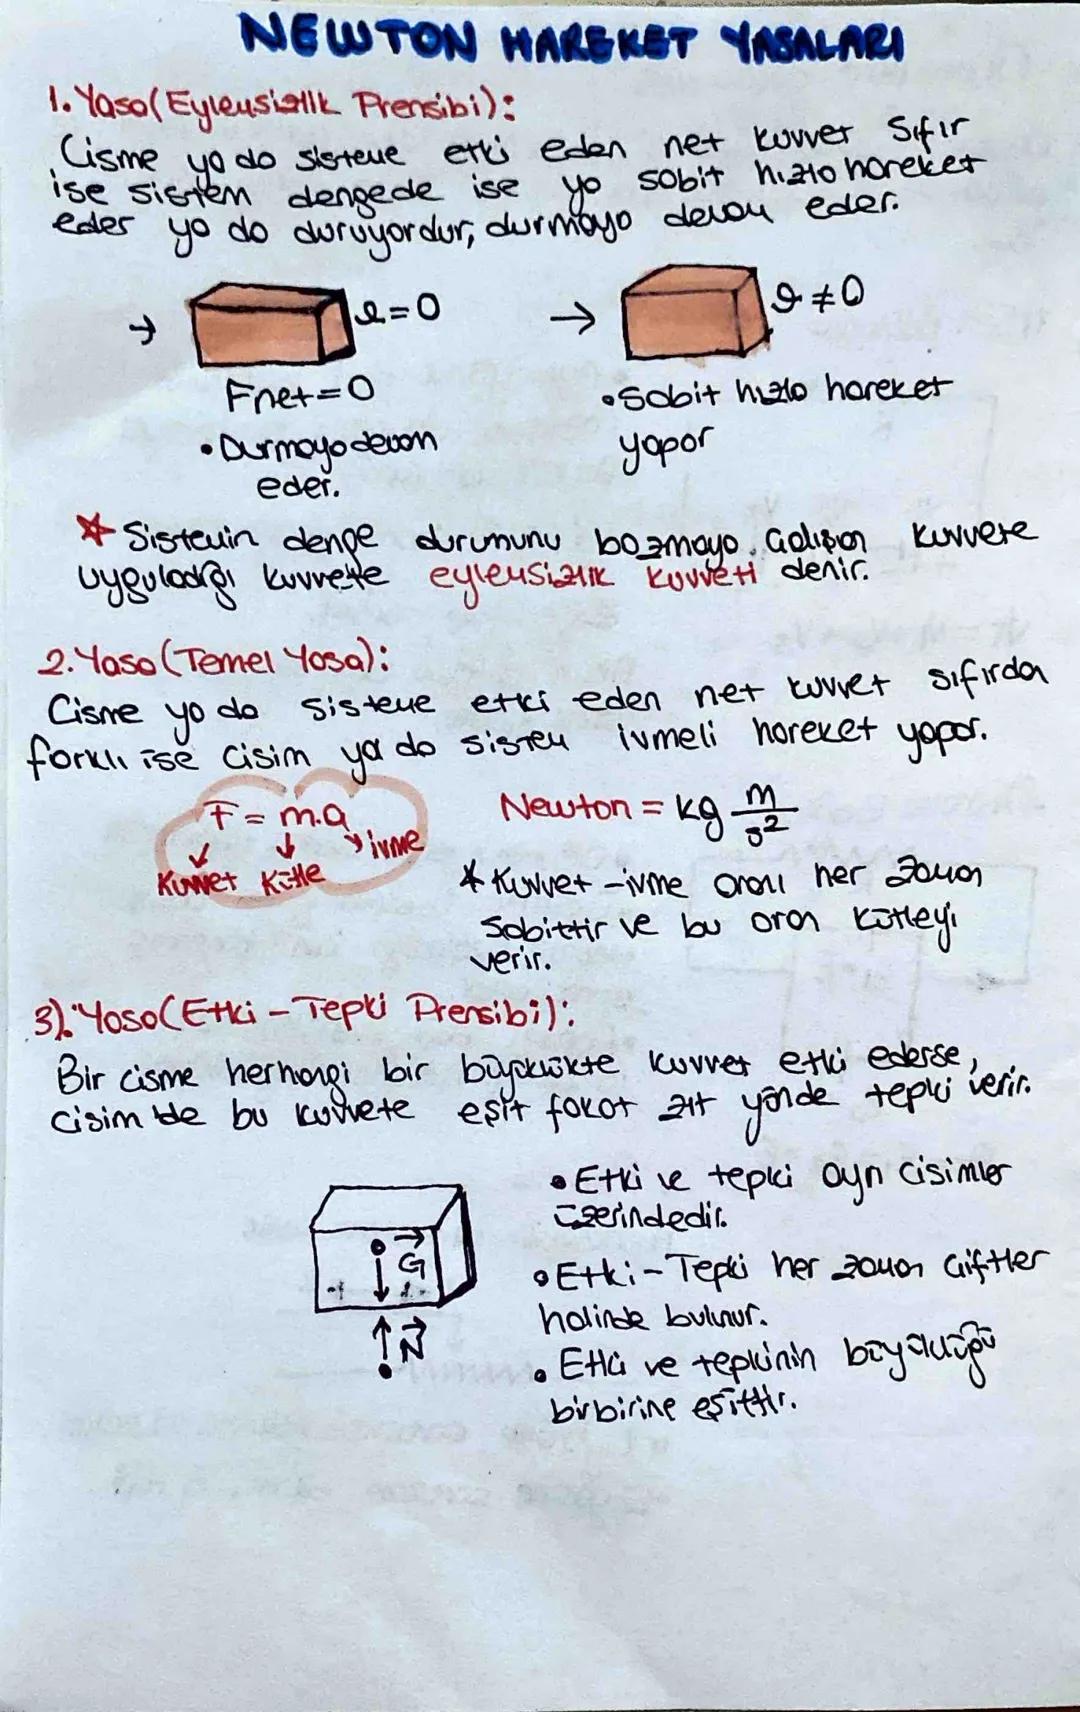 NEWTON HAREKET YASALARI
1. Yasa (Eylemsizlik Prensibi):
Cisme ya da sisteme etki eden net kuvvet sıfır
ise sistem dengede ise ya sabit hızla hareket
eder ya da duruyordur, durmaya devam eder.
→ ϑ=0
→ ϑ≠0
Fnet=0
• Durmaya devam
eder.
• Sabit hızla hareket
yapar
* Sistemin denge durumunu bozmaya çalışan kuvvete
uyguladığı kuvvete eylemsizlik kuvveti denir.
2. Yasa (Temel Yasa):
Cisme ya da sisteme etki eden net kuvvet sıfırdan
farklı ise cisim ya da sistem ivmeli hareket yapar.
F = m.a
Kuvvet Kütle ivme
Newton = kg m/s²
* Kuvvet - ivme oranı her zaman
sabittir ve bu oran kütleyi
verir.
3). Yasa (Etki - Tepki Prensibi):
Bir cisme herhangi bir büyüklükte kuvvet etki ederse,
cisim de bu kuvvete eşit fakat zıt yönde tepki verir.
G
N
• Etki ve tepki aynı cisimler
üzerindedir.
• Etki - Tepki her zaman çiftler
halinde bulunur.
• Etki ve tepkinin büyüklüğü
birbirine eşittir.